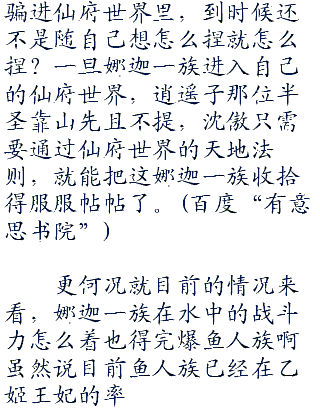 骗进仙府世界里，到时候还
不是随自己想怎么捏就怎么
捏？一旦娜迦一族进入自己
的仙府世界，逍遥子那位半
圣靠山先且不提，沈傲只需
要通过仙府世界的天地法
则，就能把这娜迦一族收拾
得服服帖帖了。(百度“有意
思书院”)
更何况就目前的情况来
看，娜迦一族在水中的战斗
力怎么着也得完爆鱼人族啊
虽然说目前鱼人族已经在乙
姬王妃的率